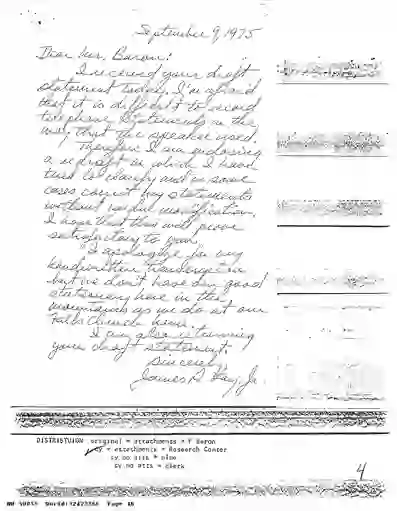 September 9, 1975
Dear Mr. Baron:
I received your draft
statement today. I'm afraid
that it is difficult to record
telephone statements in the
way that the speaker used.
Therefore I am enclosing
a redraft in which I have
tried to clarify and in some
cases correct my statements
without modification.
I hope that this will prove
satisfactory to you.
I apologize for my
handwritten
but we don't have our good
stationery here in the
mountains as we do at our
Falls Church home.
I am also returning
your draft statement.
Sincerely,
James P. Jr.
DISTRIBUTION original + attachments = F Baron
cy + attachments = Research Center
cy no atts =
cy no atts = clerk
4
Page 16